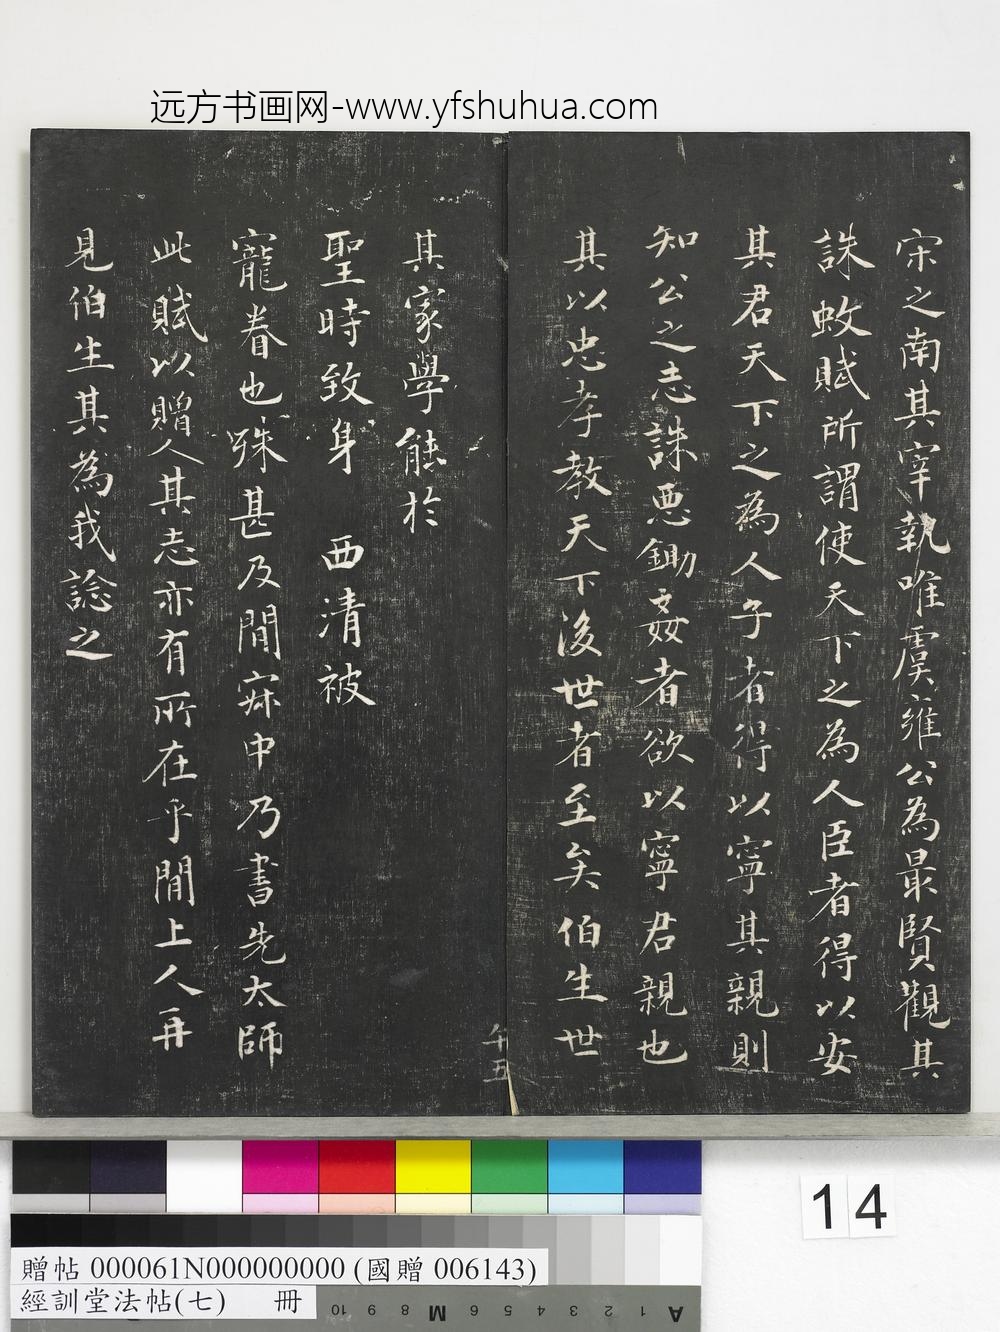 远方书画网-www.yfshuhua.com
宋之南其宰執唯虞雍公為最賢觀其
誅蚊賦所謂使天下之為人臣者得以安
其君天下之為人子者得以寧其親則
知公之志誅惡鋤姦者欲以寧君親也
其以忠孝教天下後世者至矣伯生世
其家學能於
聖時致身 西清被
寵眷也殊甚及閒寂中乃書先太師
此賦以贈人其志亦有所在乎閒上人再
見伯生其為我諗之
午五
14
贈帖 000061N000000000 (國贈 006143)
經訓堂法帖(七) 冊
10 9 8 M 6 5 4 3 2 1 A